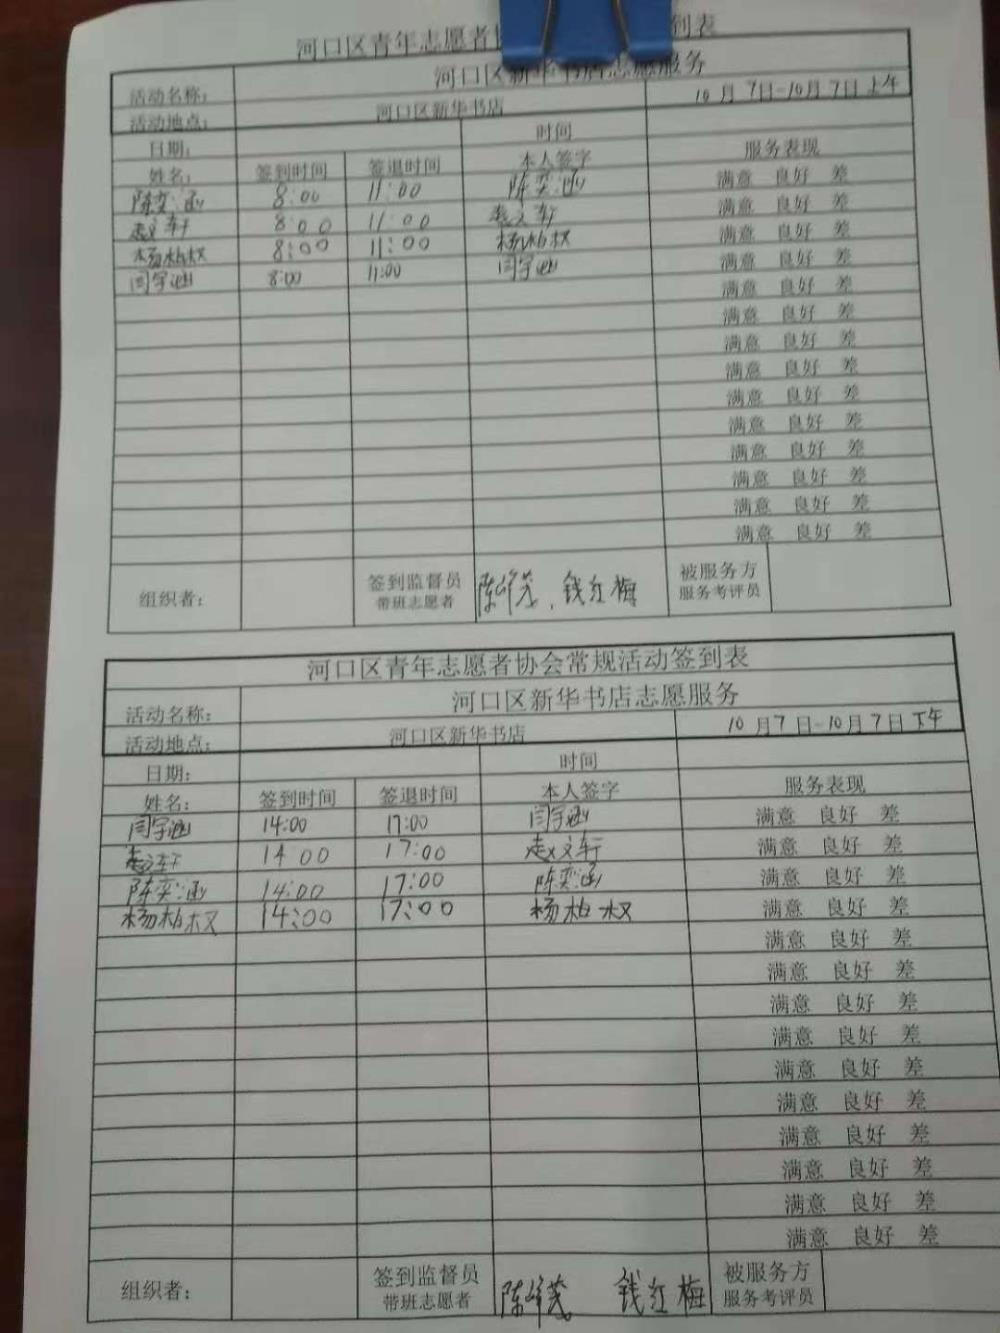 河口区青年志愿者协 到表
河口区新华书店志愿服务
活动名称：
活动地点： 河口区新华书店 10月7日-10月7日上午
日期： 时间
姓名： 签到时间 签退时间 本人签字 服务表现
陈奕涵 8:00 11:00 陈奕涵 满意 良好 差
赵文轩 8:00 11:00 赵文轩 满意 良好 差
杨柏权 8:00 11:00 杨柏权 满意 良好 差
闫宇涵 8:00 11:00 闫宇涵 满意 良好 差
满意 良好 差
满意 良好 差
满意 良好 差
满意 良好 差
满意 良好 差
满意 良好 差
满意 良好 差
满意 良好 差
满意 良好 差
满意 良好 差
组织者： 签到监督员 带班志愿者 陈 、钱红梅 被服务方 服务考评员
河口区青年志愿者协会常规活动签到表
活动名称： 河口区新华书店志愿服务
活动地点： 河口区新华书店 10月7日-10月7日下午
日期： 时间
姓名： 签到时间 签退时间 本人签字 服务表现
闫宇涵 14:00 17:00 闫宇涵 满意 良好 差
赵文轩 14:00 17:00 赵文轩 满意 良好 差
陈奕涵 14:00 17:00 陈奕涵 满意 良好 差
杨柏权 14:00 17:00 杨柏权 满意 良好 差
满意 良好 差
满意 良好 差
满意 良好 差
满意 良好 差
满意 良好 差
满意 良好 差
满意 良好 差
满意 良好 差
满意 良好 差
满意 良好 差
组织者： 签到监督员 带班志愿者 陈 钱红梅 被服务方 服务考评员